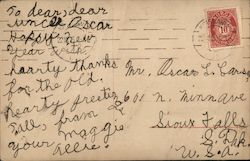 To dear, dear
uncle Oscar
Happy New
Year with
hearty thanks
for the old.
hearty greetings
all, from
your Maggie
Mr. Oscar L.
601 n. Minn ave
Sioux Falls
S. Dak
U.S.A.
10